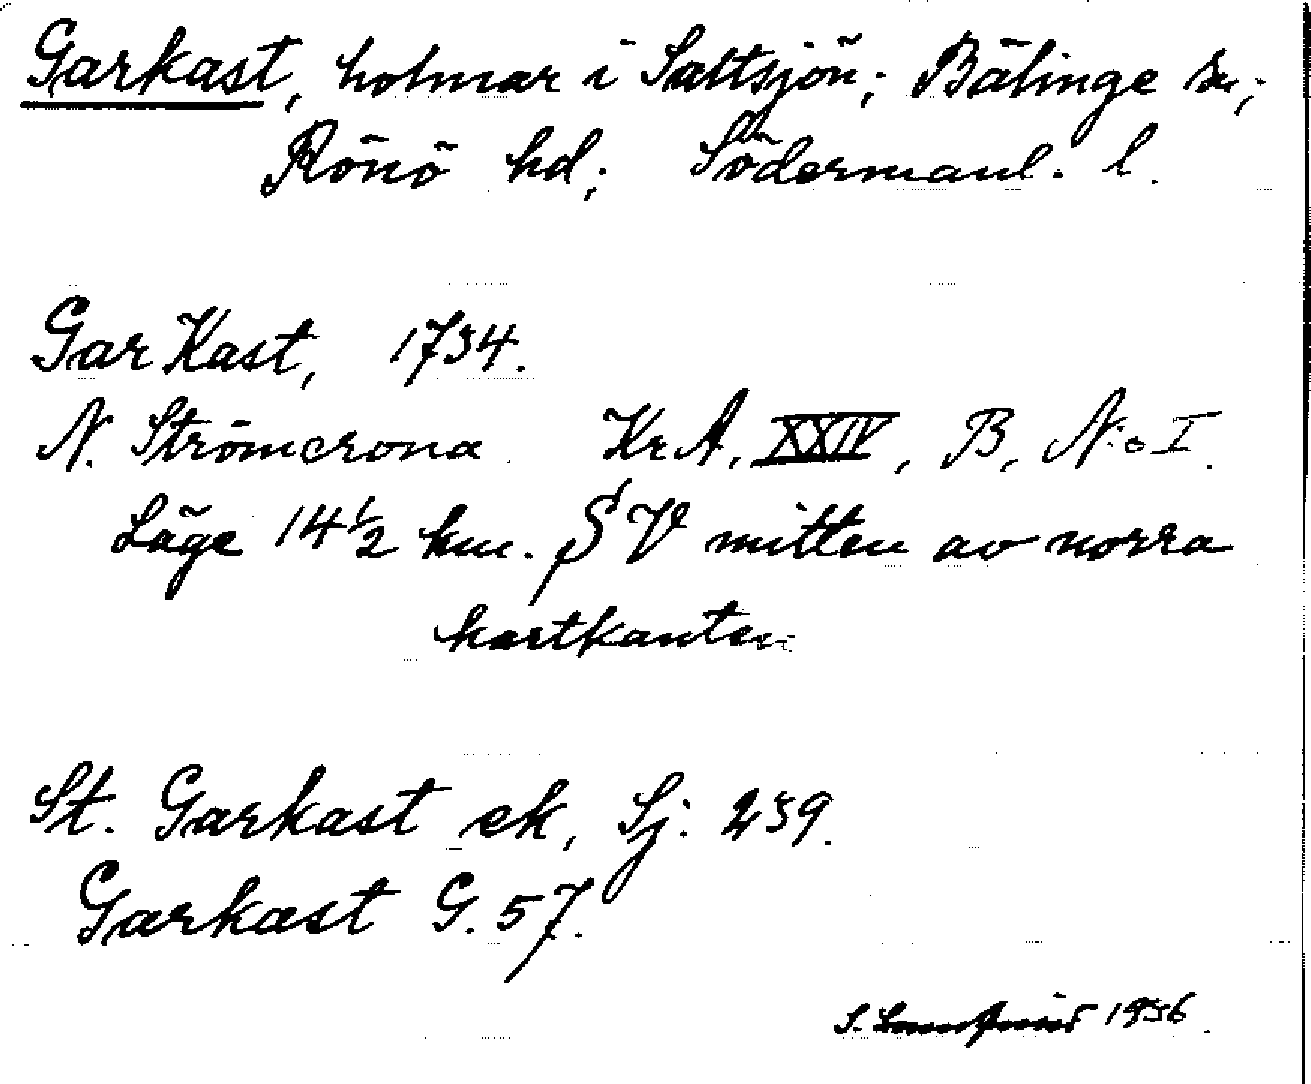 Garkast, holmar i Saltsjön; Bälinge sn;
Rönö hd; Södermanl. l.
Gar Kast, 1734.
N. Strömcrona KrA, XXIV, B, N:o I.
Läge 14½ km. SV mitten av norra
kartkanten
St. Garkast ek, Sj: 239.
Garkast G. 57.
S. 1936.